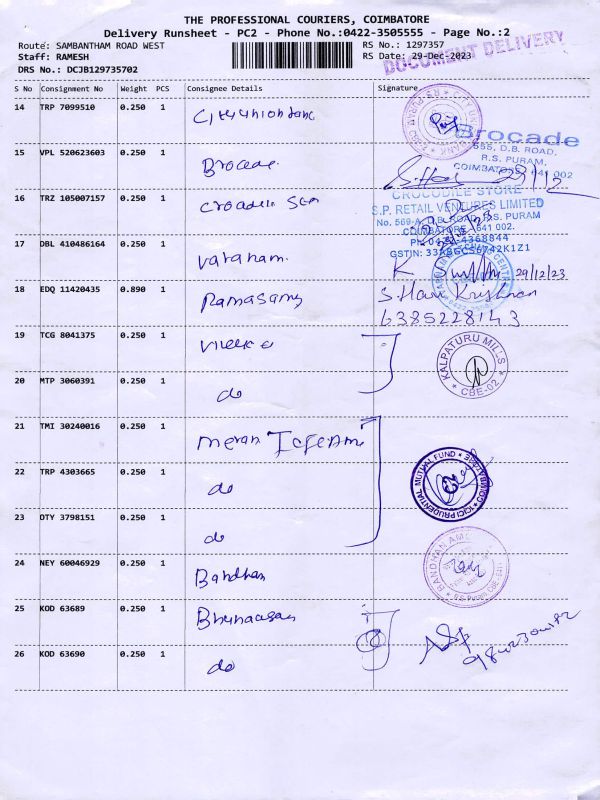 THE PROFESSIONAL COURIERS, COIMBATORE
Delivery Runsheet - PC2 - Phone No.:0422-3505555 - Page No.:2
Route: SAMBANTHAM ROAD WEST
RS No.: 1297357
Staff: RAMESH
RS Date: 29-Dec-2023
DOCUMENT DELIVERY
DRS No.: DCJB129735702
S No Consignment No Weight PCS Consignee Details Signature
14 TRP 7099510 0.250 1
R.S. PURAM
Brocade
555, D.B. ROAD,
R.S. PURAM,
COIMBATORE - 641 002
15 VPL 520623603 0.250 1 Brocade.
29/12
16 TRZ 105007157 0.250 1
CROCODILE STORE
S.P. RETAIL VENTURES LIMITED
No. 569-A, D.B. ROAD, R.S. PURAM
COIMBATORE - 641 002.
17 DBL 410486164 0.250 1 Varaham.
29/12/23
18 EDQ 11420435 0.890 1 Ramasamy
S. Hari Krishnan
6385228143
19 TCG 8041375 0.250 1
KALPATURU MILLS
CBE-02
20 MTP 3060391 0.250 1 do
21 TMI 30240016 0.250 1
22 TRP 4303665 0.250 1 do
ICICI PRUDENTIAL MUTUAL FUND
COIMBATORE
23 OTY 3798151 0.250 1 do
24 NEY 60046929 0.250 1 Bandhan
BANDHAN AMC
R.S. Puram CBE
25 KOD 63689 0.250 1
26 KOD 63690 0.250 1 do